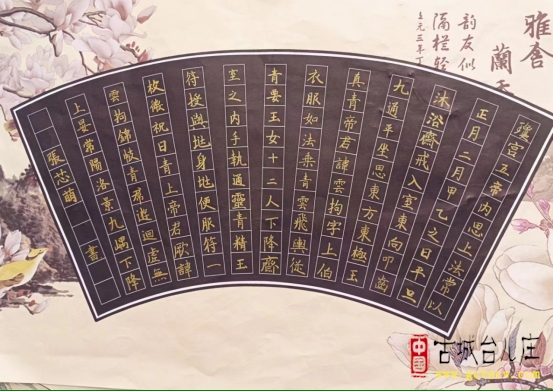 雅舍
蘭
韵友似
隔栏轻
瓊宮五帝內思上法常以
正月二月甲乙之日平旦
沐浴齋戒入室東向叩齒
九通平坐思東方東極玉
真青帝君諱雲拘字上伯
衣服如法乘青雲飛輿從
青要玉女十二人下降齋
室之內手執通靈青精玉
符授與地身地便服符一
枚微祝曰青上帝君厥諱
雲拘錦帔青裙遊迴虛無
上晏常陽洛景九隅下降
張芯萌 書
中国 古城台儿庄